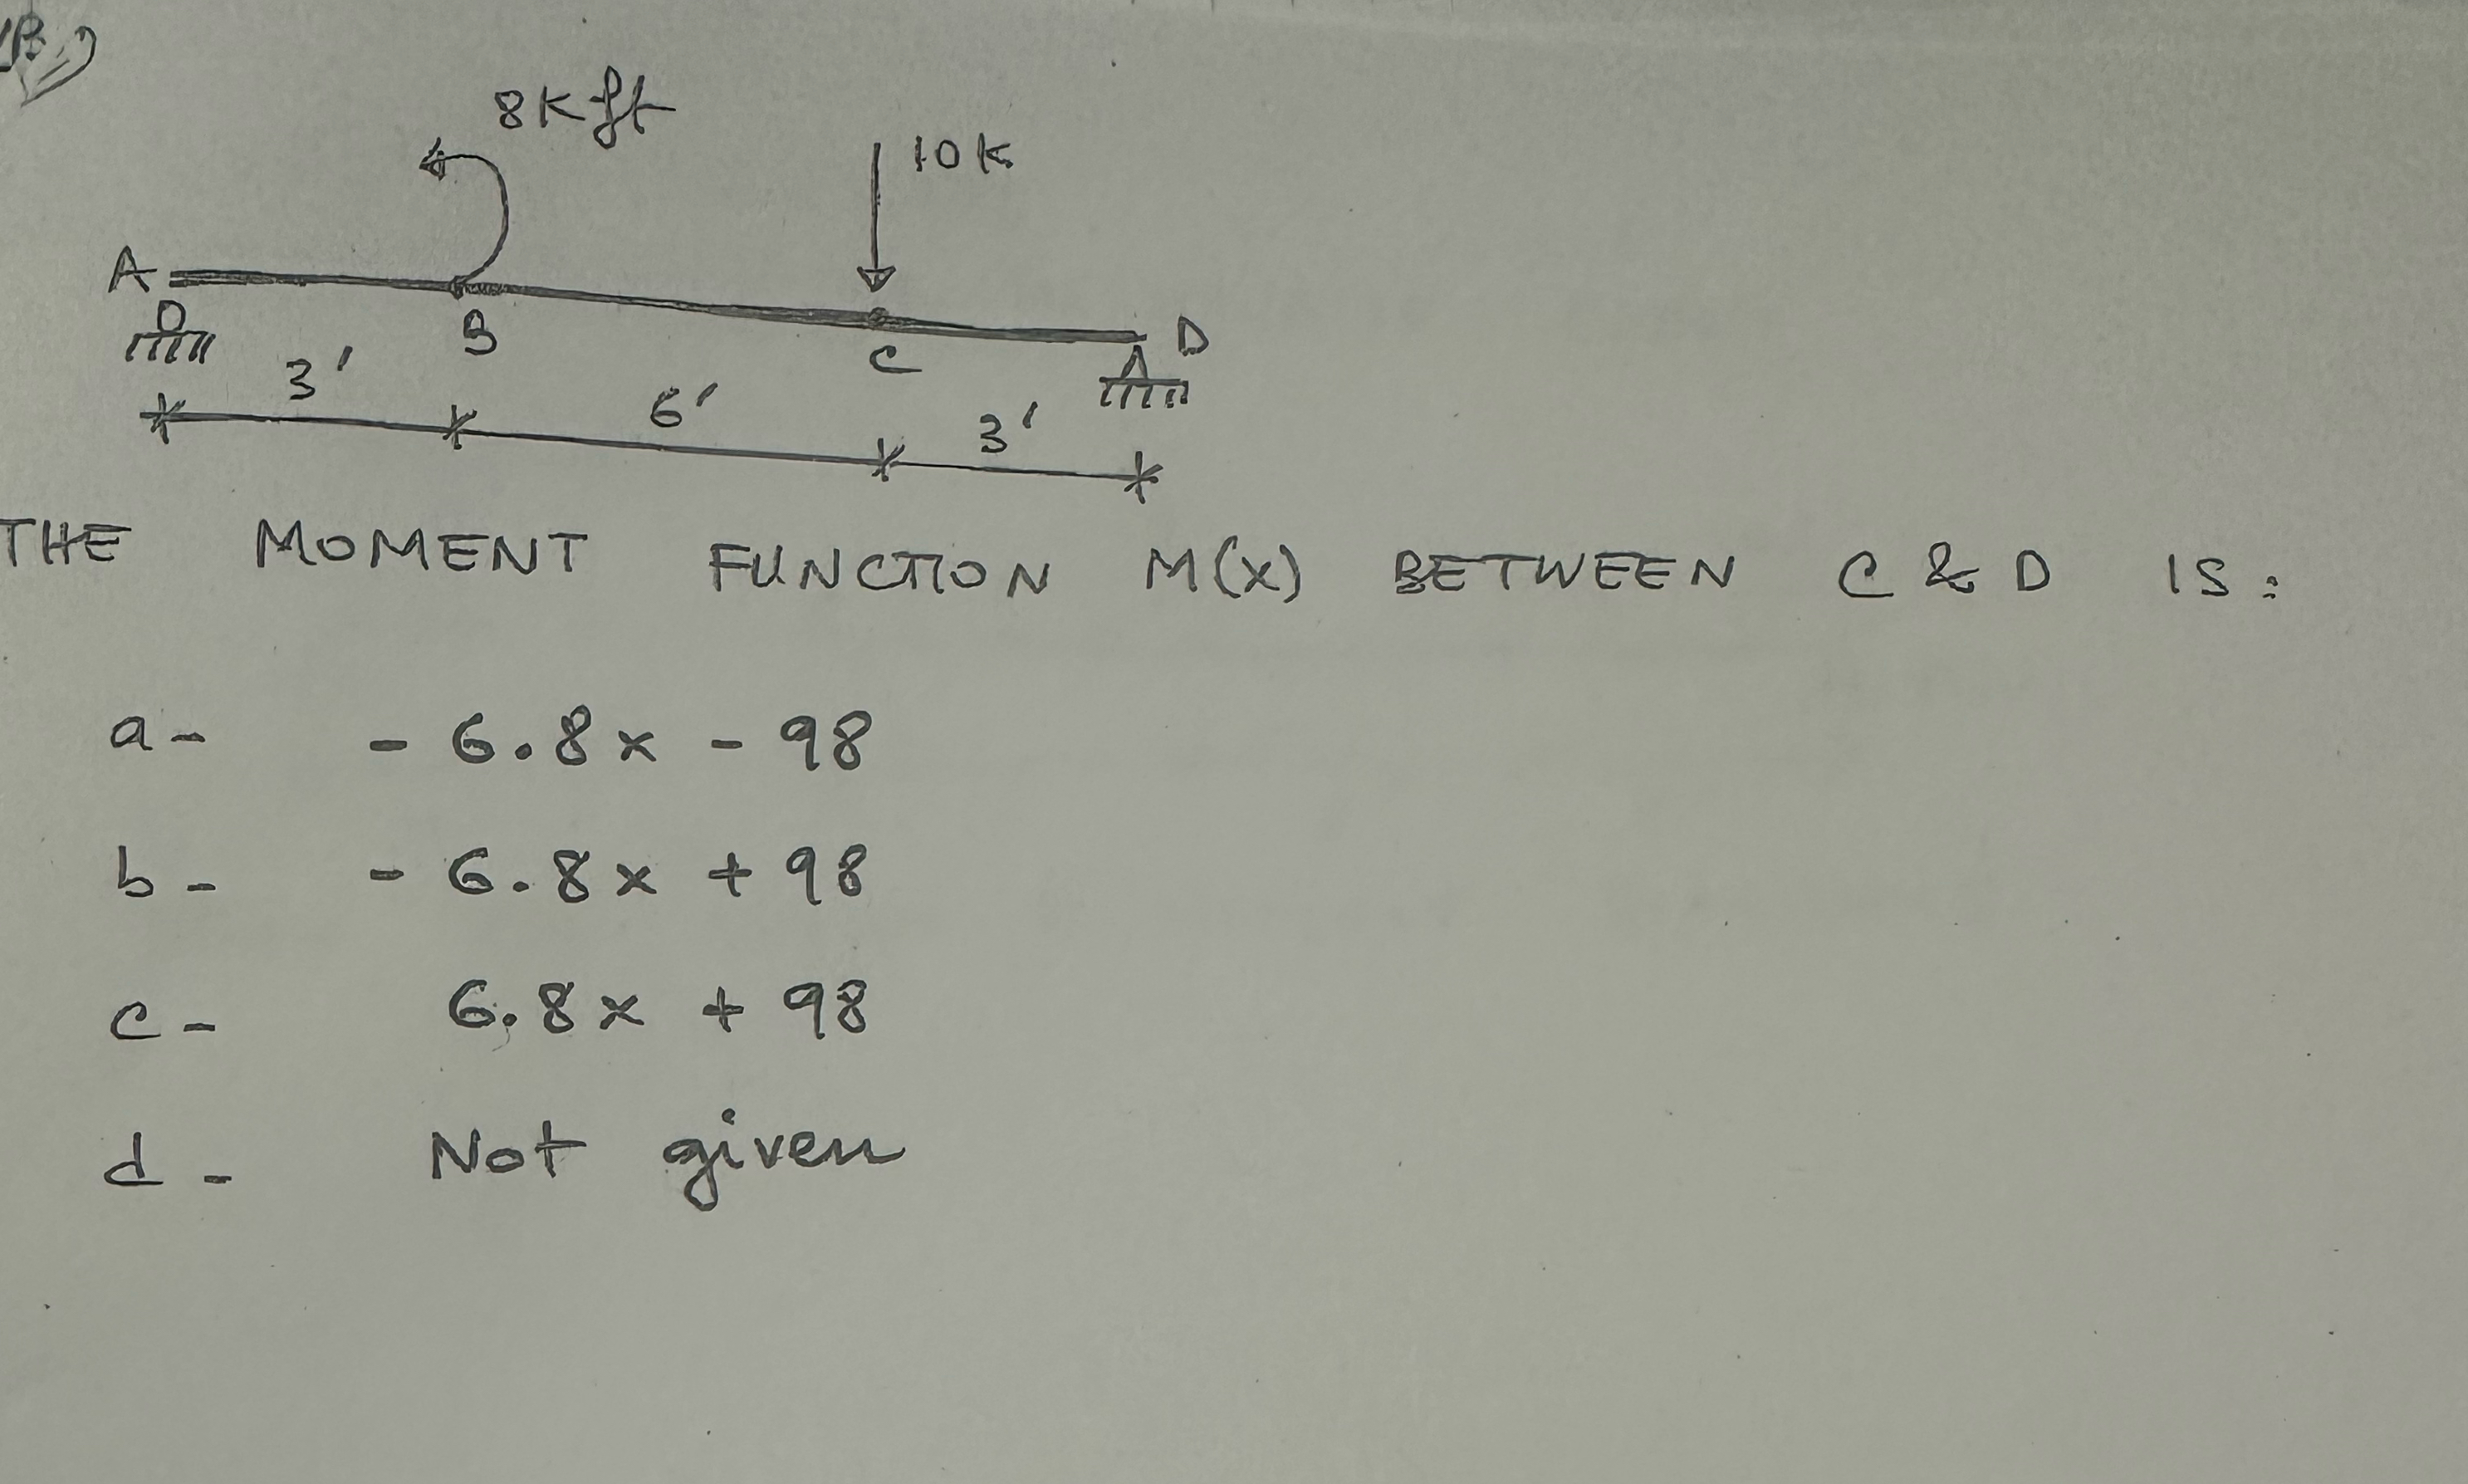 8K ft
10K
A
B
C
D
3'
6'
3'
THE MOMENT FUNCTION M(X) BETWEEN C & D IS:
a- - 6.8x - 98
b- - 6.8x + 98
c- 6.8x + 98
d- Not given